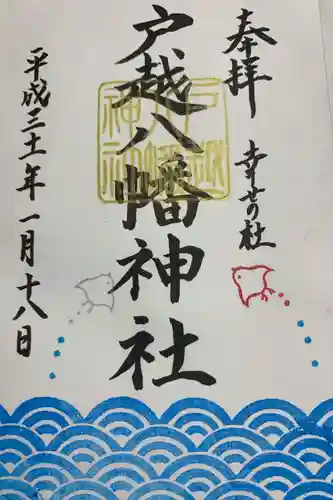 奉拝
幸せの社
戸越八幡神社
戸越八幡神社
平成三十一年一月十八日